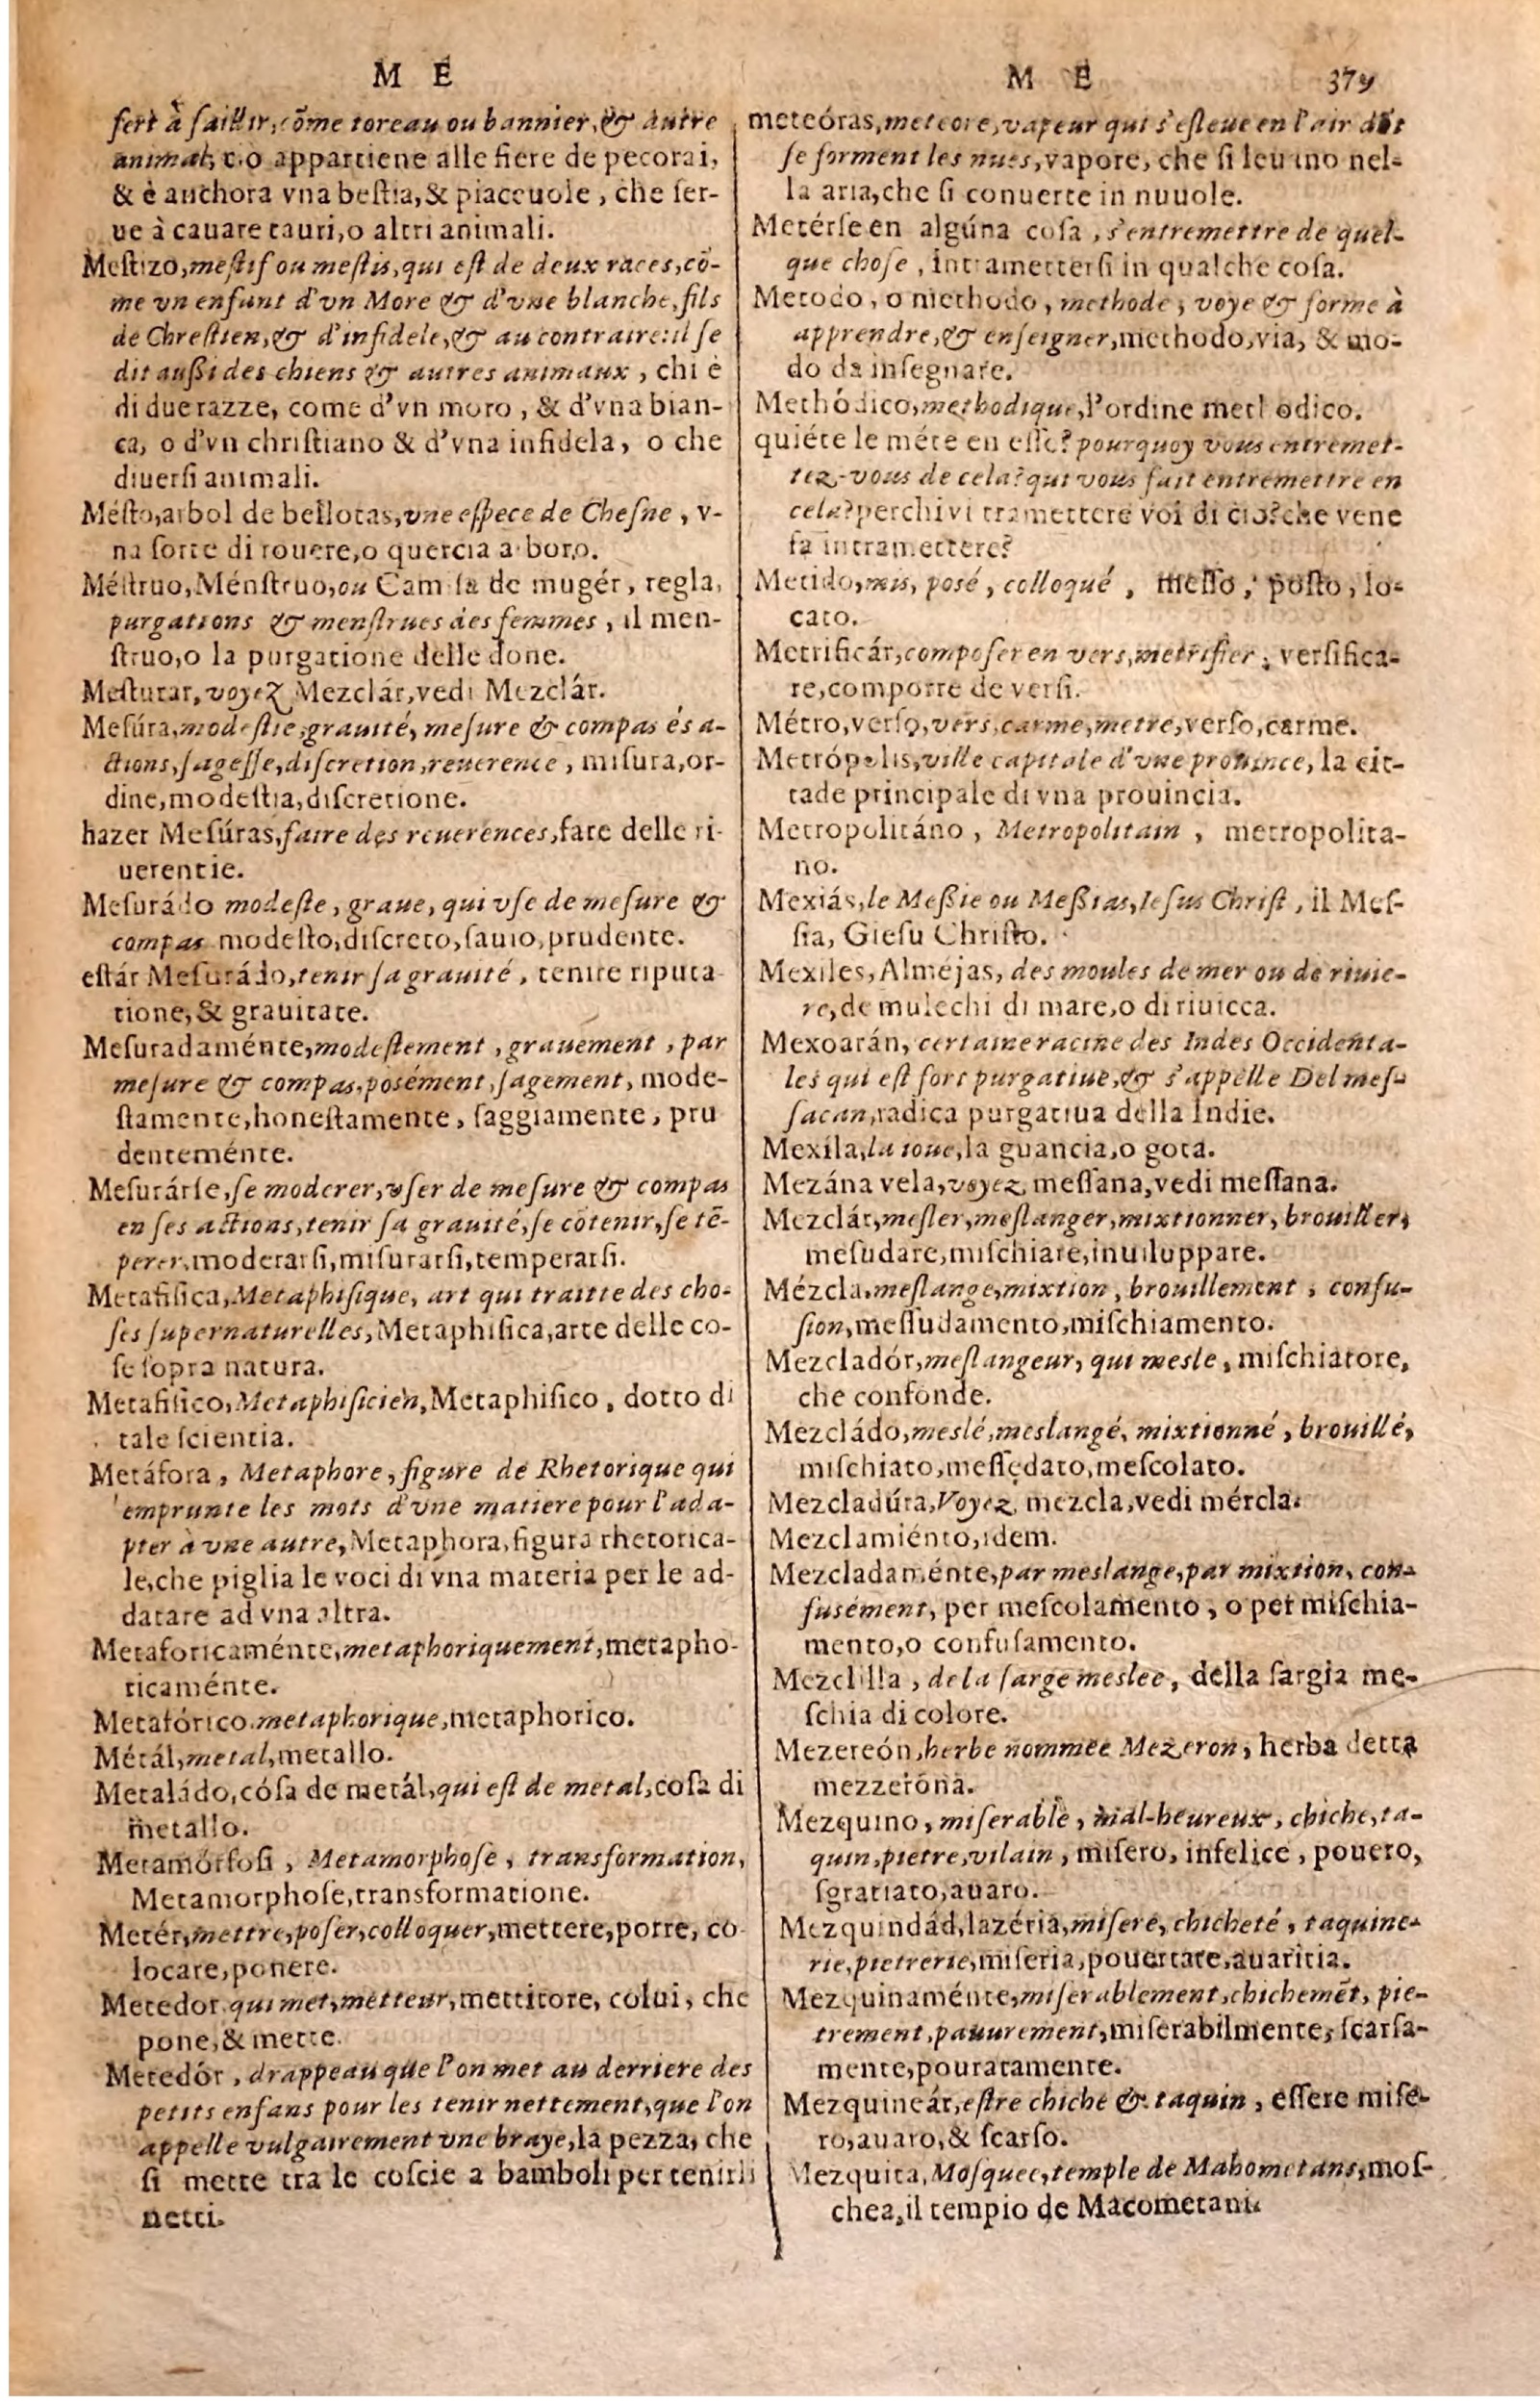 M E
ſert à ſaillir, cõme toreau ou bannier, & autre
animal, c.o appartiene alle fiere de pecorai,
& è anchora vna beſtia, & piaceuole, che ſer-
ue à cauare tauri, o altri animali.
Meſtizo, meſtif ou meſtis, qui eſt de deux races, cõ-
me vn enfant d'vn More & d'vne blanche, fils
de Chreſtien, & d'infidele, & au contraire: il ſe
dit außi des chiens & autres animaux, chi è
di due razze, come d'vn moro, & d'vna bian-
ca, o d'vn chriſtiano & d'vna infidela, o che
diuerſi animali.
Méſto, arbol de bellotas, vne eſpece de Cheſne, v-
na ſorte di rouere, o quercia a boro.
Méſtruo, Ménſtruo, ou Camiſa de mugér, regla,
purgations & menſtrues des femmes, il men-
ſtruo, o la purgatione delle done.
Meſturar, voyez Mezclár, vedi Mezclár.
Meſúra, modeſtie, grauité, meſure & compas és a-
ctions, ſageſſe, diſcretion, reuerence, miſura, or-
dine, modeſtia, diſcretione.
hazer Meſúras, faire des reuerences, fare delle ri-
uerentie.
Meſurádo modeſte, graue, qui vſe de meſure &
compas modeſto, diſcreto, ſauio, prudente.
eſtár Meſurádo, tenir ſa grauité, tenire riputa
tione, & grauitate.
Meſuradaménte, modeſtement, grauement, par
meſure & compas, posément, ſagement, mode-
ſtamente, honeſtamente, ſaggiamente, pru
denteménte.
Meſurárſe, ſe moderer, vſer de meſure & compas
en ſes actions, tenir ſa grauité, ſe cõtenir, ſe tẽ-
perer, moderarſi, miſurarſi, temperarſi.
Metafiſica, Metaphiſique, art qui traitte des cho-
ſes ſupernaturelles, Metaphiſica, arte delle co-
ſe ſopra natura.
Metafiſico, Metaphiſicien, Metaphiſico, dotto di
tale ſcientia.
Metáfora, Metaphore, figure de Rhetorique qui
emprunte les mots d'vne matiere pour l'ada-
pter à vne autre, Metaphora, figura rhetorica-
le, che piglia le voci di vna materia per le ad-
datare ad vna altra.
Metaforicaménte, metaphoriquement, metapho-
ricaménte.
Metafórico, metaphorique, metaphorico.
Métál, metal, metallo.
Metaládo, cóſa de metál, qui eſt de metal, coſa di
metallo.
Metamórfoſi, Metamorphoſe, transformation,
Metamorphoſe, transformatione.
Metér, mettre, poſer, colloquer, mettere, porre, co
locare, ponere.
Metedor, qui met, metteur, mettitore, colui, che
pone, & mette.
Metedór, drappeau que l'on met au derriere des
petits enfans pour les tenir nettement, que l'on
appelle vulgairement vne braye, la pezza, che
ſi mette tra le coſcie a bamboli per tenirli
netti.
M E 379
meteóras, meteore, vapeur qui s'eſleue en l'air dõt
ſe forment les nues, vapore, che ſi leuano nel-
la aria, che ſi conuerte in nuuole.
Metérſe en algúna coſa, s'entremettre de quel-
que choſe, intrametterſi in qualche coſa.
Metodo, o methodo, methode, voye & forme à
apprendre, & enſeigner, methodo, via, & mo-
do da inſegnare.
Methódico, methodique, l'ordine methodico.
quiéte le méte en eſſe? pourquoy vous entremet-
tez-vous de cela? qui vous fait entremettre en
cela? perchi vi tramettere voi di cio? che vene
fa intramettere?
Metido, mis, posé, colloqué, meſſo, poſto, lo-
cato.
Metrificár, compoſer en vers, metrifier, verſifica-
re, comporre de verſi.
Métro, verſo, vers, carme, metre, verſo, carme.
Metrópolis, ville capitale d'vne prouince, la cit-
tade principale di vna prouincia.
Metropolitáno, Metropolitain, metropolita-
no.
Mexiás, le Meßie ou Meßias, Ieſus Chriſt, il Meſ-
ſia, Gieſu Chriſto.
Mexiles, Alméjas, des moules de mer ou de riuie-
re, de mulechi di mare, o di riuicca.
Mexoarán, certaine racine des Indes Occidenta-
les qui eſt fort purgatiue, & s'appelle Del meſ-
ſacan, radica purgatiua della Indie.
Mexíla, la ioue, la guancia, o gota.
Mezána vela, voyez meſſana, vedi meſſana.
Mezclár, meſler, meſlanger, mixtionner, brouiller,
meſudare, miſchiare, inuiluppare.
Mézcla, meſlange, mixtion, brouillement, confu-
ſion, meſſudamento, miſchiamento.
Mezcladór, meſlangeur, qui mesle, miſchiatore,
che confonde.
Mezcládo, meslé, meslangé, mixtionné, brouillé,
miſchiato, meſſedato, meſcolato.
Mezcladúra, Voyez mezcla, vedi mércla.
Mezclamiénto, idem.
Mezcladaménte, par meslange, par mixtion, con-
fusément, per meſcolamento, o per miſchia-
mento, o confuſamento.
Mezclilla, de la ſarge meslee, della ſargia me-
ſchia di colore.
Mezereón, herbe nommee Mezeron, herba detta
mezzeróna.
Mezquino, miſerable, mal-heureux, chiche, ta-
quin, pietre, vilain, miſero, infelice, pouero,
ſgratiato, auaro.
Mezquindád, lazéria, miſere, chicheté, taquine-
rie, pietrerie, miſeria, pouertate, auaritia.
Mezquinaménte, miſerablement, chichemẽt, pie-
trement, pauurement, miſerabilmente, ſcarſa-
mente, pouratamente.
Mezquineár, eſtre chiche & taquin, eſſere miſe-
ro, auaro, & ſcarſo.
Mezquita, Moſquee, temple de Mahometans, moſ-
chea, il tempio de Macometani.